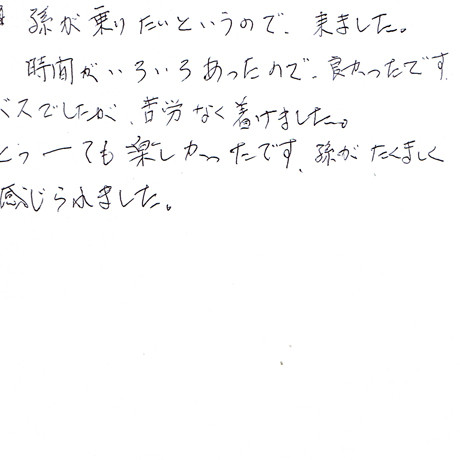 孫が乗りたいというので、来ました。
時間がいろいろあったので、良かったです
バスでしたが、苦労なく着けました。
とっーても楽しかったです、孫がたくましく
感じられました。